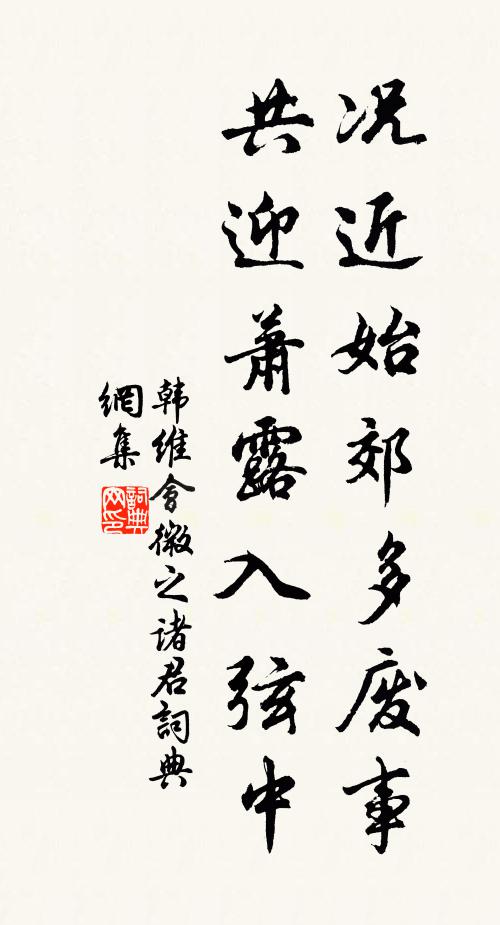 况近始郊多废事
共迎萧露入弦中
韩维会微之诸君词典
網集
詞典网印